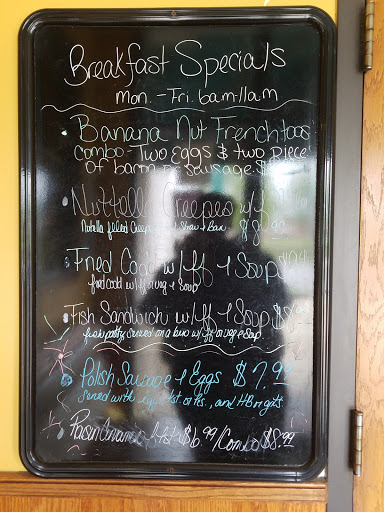 Breakfast Specials
Mon. - Fri. 6am-11am
Banana Nut French toas
Combo - Two Eggs & two piece
of bacon or Sausage. $
Nuttella Creepes w/
Nutella filled Creepes Straw & Ban $8.99
Fried Cod w/ff & Soup
fried cod w/ff or veg & Soup
Fish Sandwich w/ff & Soup $8.99
served on a bun w/ff or veg & Soup.
Polish Sausage & Eggs $7.99
served with eggs, tst or Ps., and HB or gits.
Raisin Cinnamon $6.99/Combo $8.99